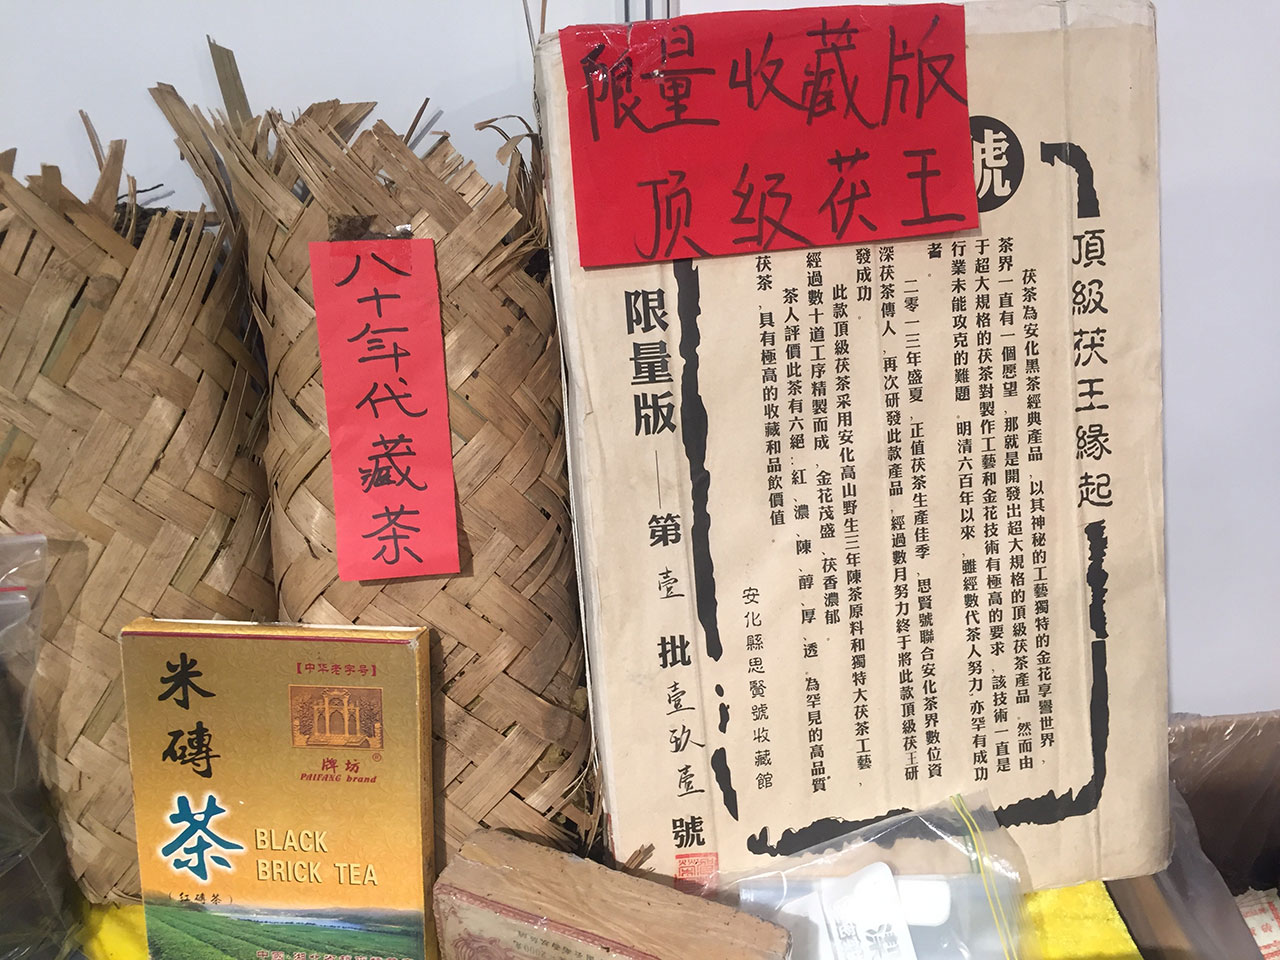 限量收藏版
顶级茯王
號
頂級茯王緣起
茯茶為安化黑茶經典產品，以其神秘的工藝獨特的金花享譽世界，
茶界一直有一個愿望，那就是開發出超大規格的頂級茯茶產品。然而由
于超大規格的茯茶對製作工藝和金花技術有極高的要求，該技術一直是
行業未能攻克的難題。明清六百年以來，雖經數代茶人努力，亦罕有成功
者。
二零一三年盛夏，正值茯茶生產佳季，思賢號聯合安化茶界數位資
深茯茶傳人，再次研發此款產品，經過數月努力終于將此款頂級茯王研
發成功。
此款頂級茯茶采用安化高山野生三年陳茶原料和獨特大茯茶工藝，
經過數十道工序精製而成，金花茂盛、茯香濃郁。
茶人評價此茶有六絕：紅、濃、陳、醇、厚、透。為罕見的高品質
茯茶，具有極高的收藏和品飲價值。
安化縣思賢號收藏館
限量版——第壹批壹玖壹號
八十年代藏茶
米磚
茶
【中华老字号】
牌坊®
PAIFANG brand
BLACK
BRICK TEA
（红磚茶）